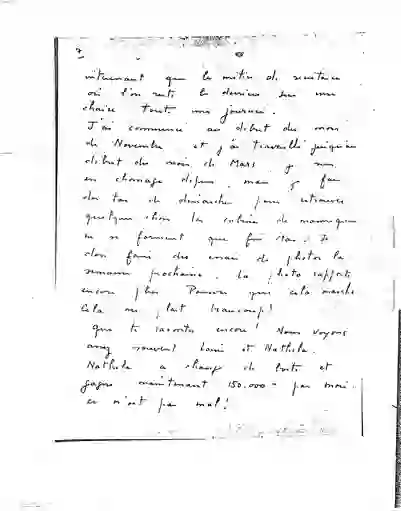 intéressant que le métier de secrétaire
où l'on reste le derrière sur une
chaise toute une journée.
J'ai commencé au début du mois
de Novembre et j'ai travaillé jusqu'au
début du mois de Mars. je suis
en chomage depuis, mais je fais
des tas de démarches pour retrouver
quelque chose les cabines de mannequin
ne se forment que fin Mai. Je
dois faire des essais de photos la
semaine prochaine. La photo rapporte
encore plus. Pourvu que cela marche
Cela me plait beaucoup!
que te raconter encore! Nous voyons
assez souvent et Nathalie.
Nathalie a changé de boite et
gagne maintenant 150.000 - par mois.
ce n'est pas mal!